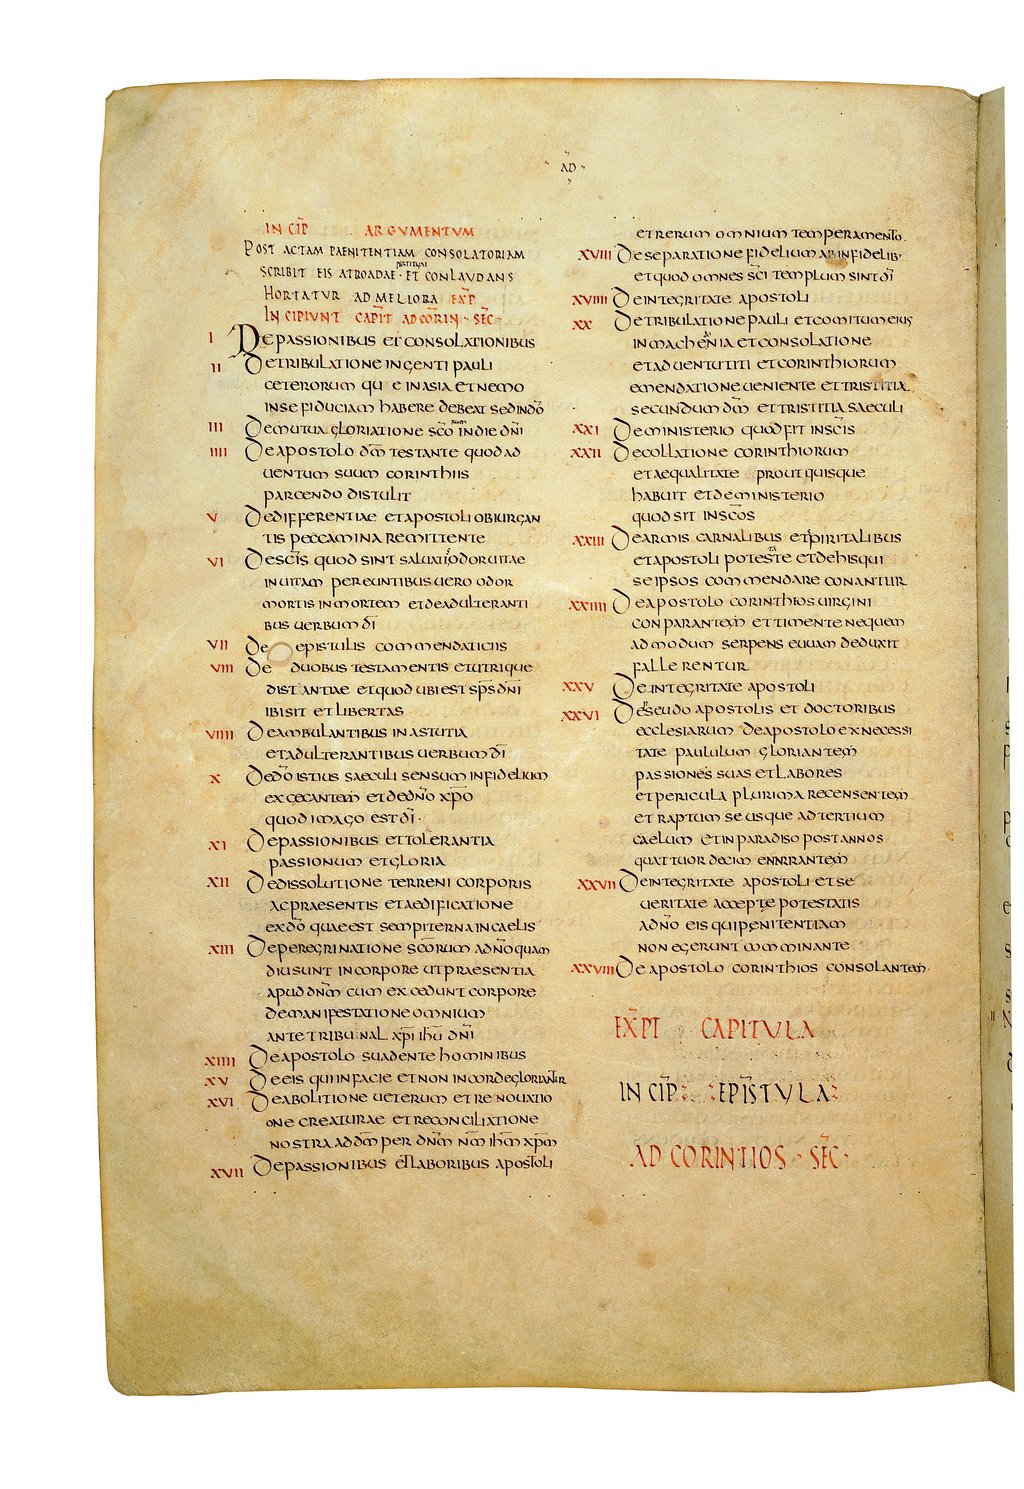 AD
INCIP ARGVMENTVM
POST ACTAM PAENITENTIAM CONSOLATORIAM
SCRIBIT EIS ATROADAE · ET CONLAVDANS
HORTATVR AD MELIORA EXP
INCIPIVNT CAPIT AD CORIN · SEC ·
I De passionibus et consolationibus
II De tribulatione ingenti pauli
ceterorumqu e in asia et nemo
in se fiduciam habere debeat sed in dō
III De mutua gloriatione scōrum in die dn̄i
IIII De apostolo dm̄ testante quod ad
uentum suum corinthiis
parcendo distulit
V De differentiae et apostoli obiurgan
tis peccamina remittente
VI De sc̄is quod sint saluatis odor uitae
in uitam pereuntibus uero odor
mortis in mortem et de adulteranti
bus uerbum dī
VII De epistulis commendaticiis
VIII De duobus testamentis et utrique
distantiae et quod ubi est sp̄s dn̄i
ibi sit et libertas
VIIII De ambulantibus in astutia
et adulterantibus uerbum dī
X De dō istius saeculi sensum infidelium
excecantem et de dn̄o xp̄o
quod imago est dī ·
XI De passionibus et tolerantia
passionum et gloria
XII De dissolutione terreni corporis
ac praesentis et aedificatione
ex dō quae est sempiterna in caelis
XIII De peregrinatione scōrum ad dn̄o quam
diu sunt in corpore ut praesentia
apud dn̄m cum excedunt corpore
de manifestatione omnium
ante tribunal xp̄i ih̄u dn̄i
XIIII De apostolo suadente hominibus
XV De eis qui in facie et non in corde gloriantur
XVI De abolitione ueterum et renouatio
one creaturae et reconciliatione
nostra ad dm̄ per dn̄m nm̄ ih̄m xp̄m
XVII De passionibus et laboribus apostoli
et rerum omnium temperamento.
XVIII De separatione fidelium ab infidelib·
et quod omnes sc̄i templum sint dī
XVIIII De integritate apostoli
XX De tribulatione pauli et comitum eius
in machenia et consolatione
et aduentu titi et corinthiorum
emendatione ueniente et tristitia
secundum dm̄ et tristitia saeculi
XXI De ministerio quod fit in sc̄is
XXII De collatione corinthiorum
et aequalitate prout quisque
habuit et de ministerio
quod sit in sc̄os
XXIII De armis carnalibus et spiritalibus
et apostoli potestate et de his qui
se ipsos commendare conantur
XXIIII De apostolo corinthios uirgini
conparantem et timente nequem
admodum serpens euam deduxit
fallerentur.
XXV De integritate apostoli
XXVI De pseudo apostolis et doctoribus
ecclesiarum de apostolo ex necessi
tate paululum gloriantem
passiones suas et labores
et pericula plurima recensentem
et raptum se usque ad tertium
caelum et in paradiso post annos
quattuordecim enarrantem
XXVII De integritate apostoli et se
ueritate accepte potestatis
ad n̄o eis qui penitentiam
non egerunt comminante
XXVIII De apostolo corinthios consolantem.
EXPT CAPITVLA
INCIP EPISTVLA
AD CORINTIOS · SEC ·